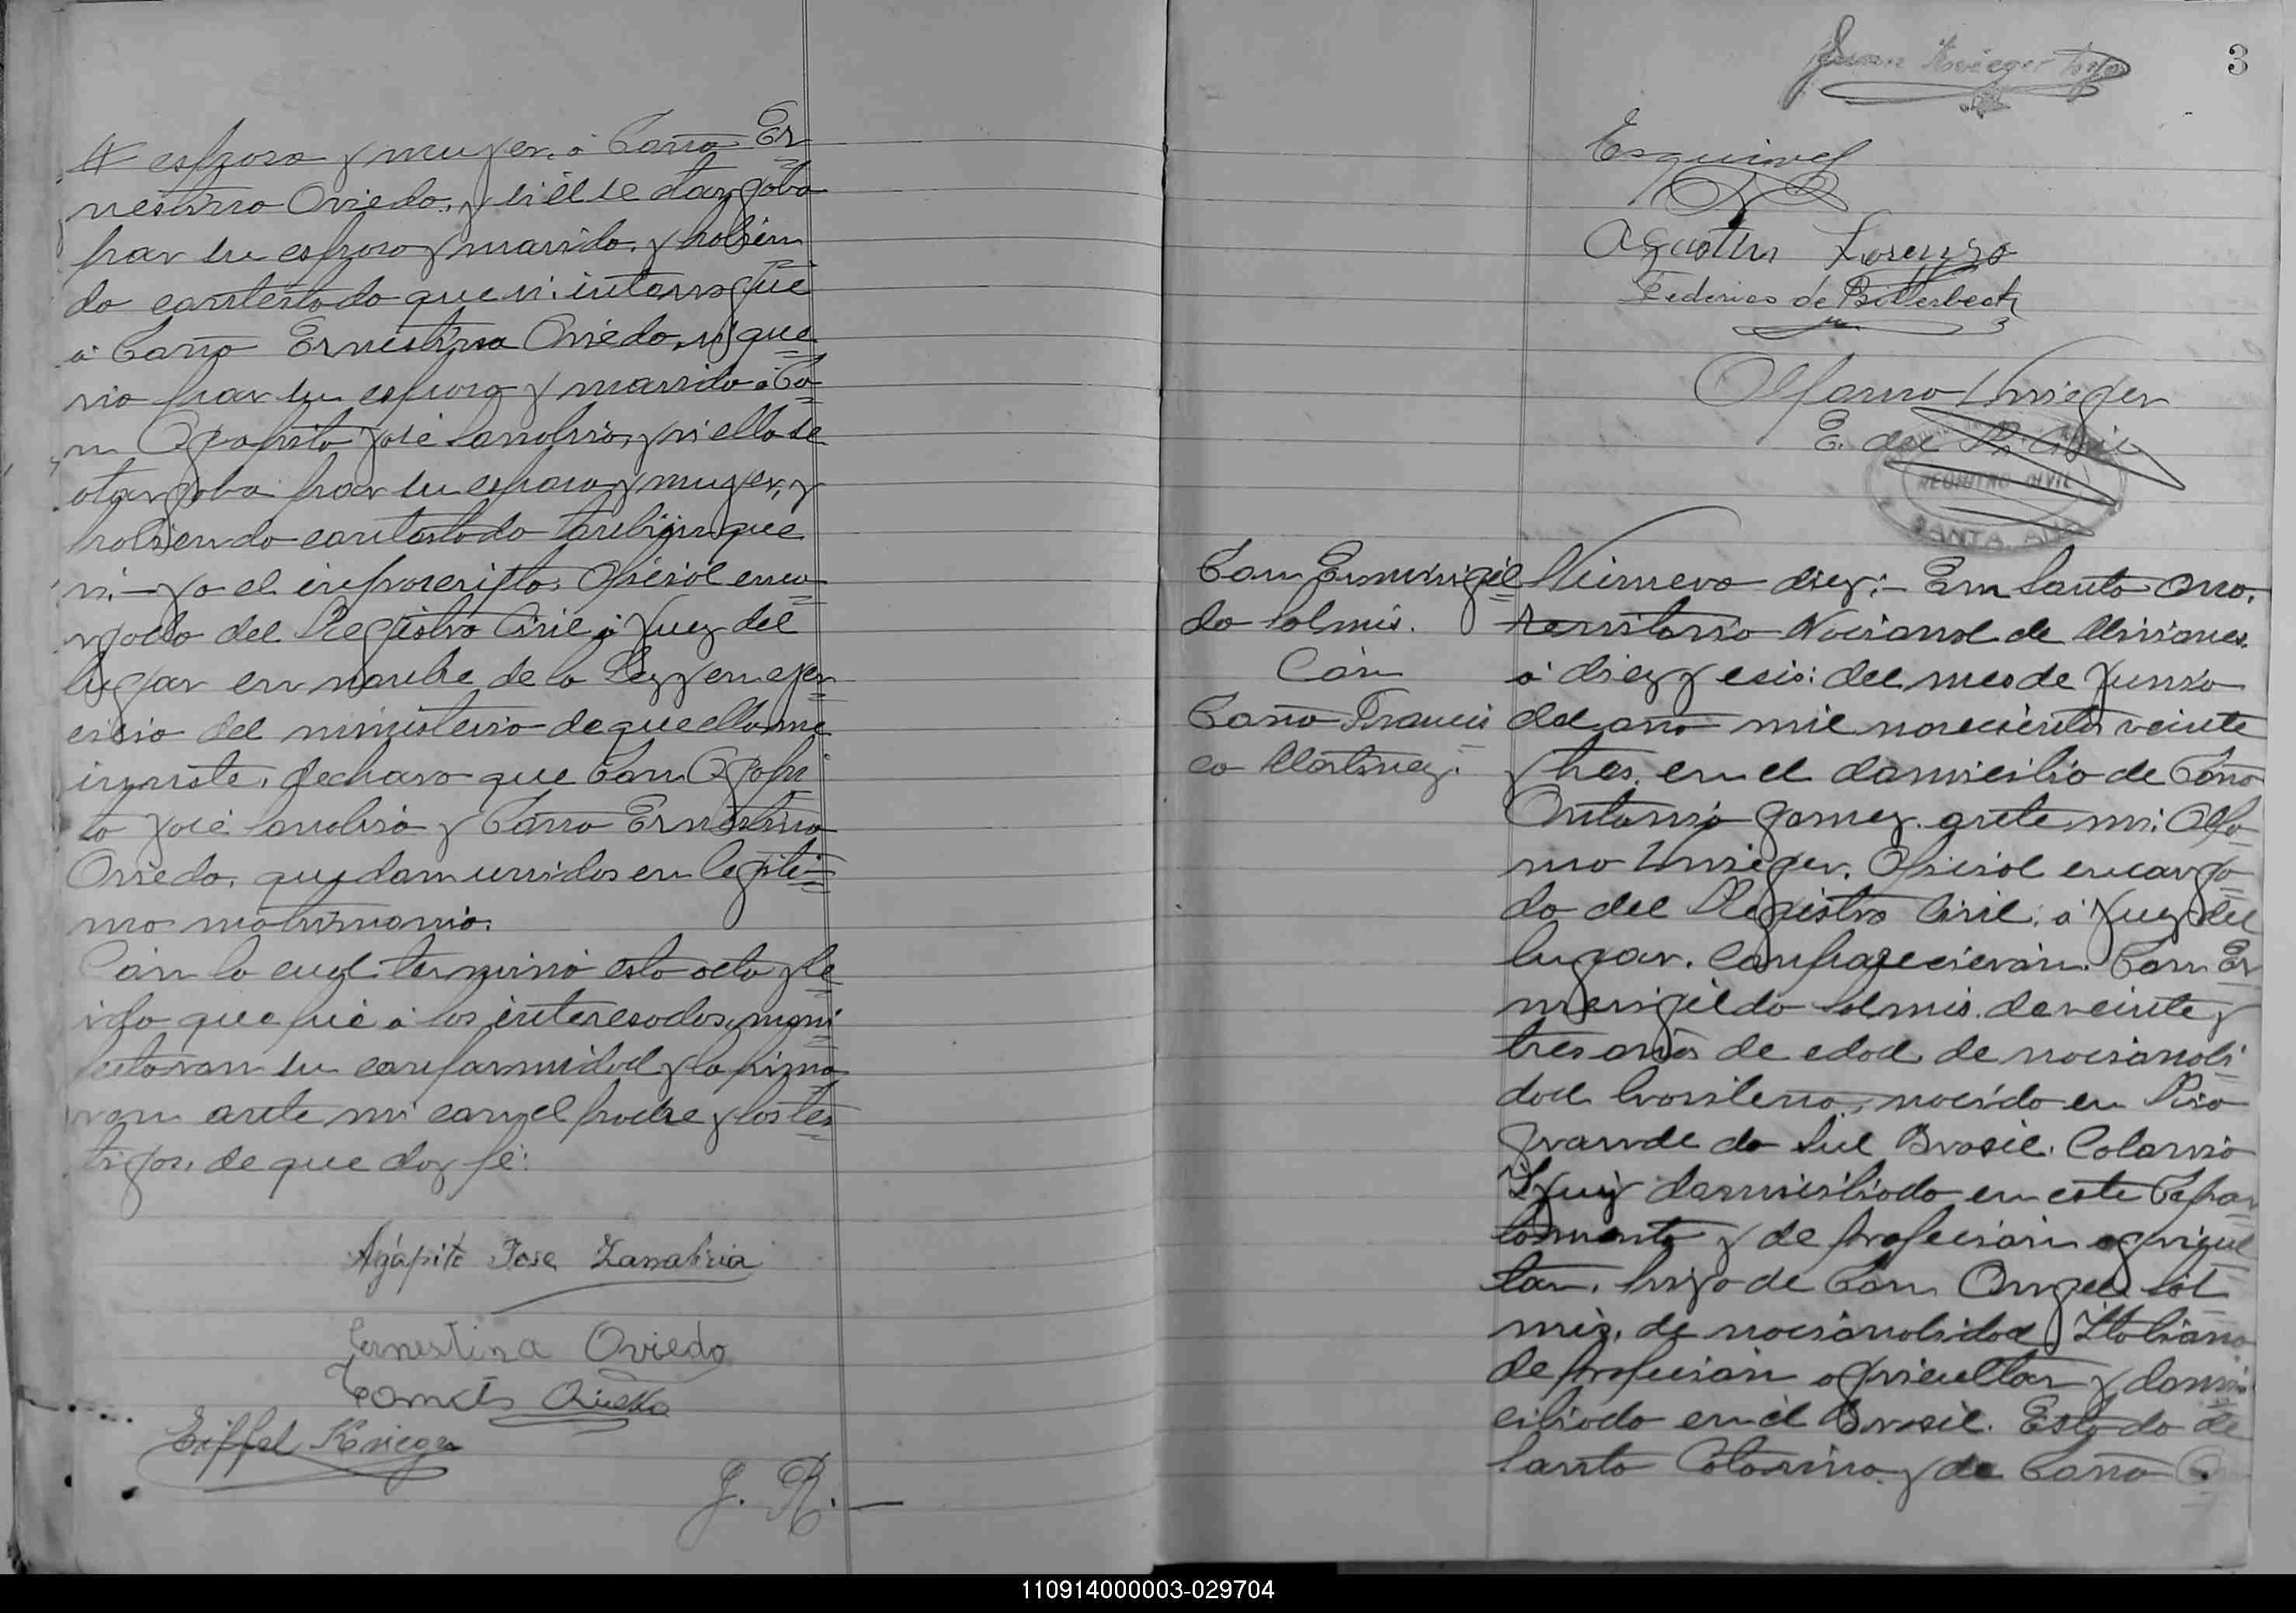 esposa y muyer. á Doña Er
nestina Oviedo, y si él se otorgaba
por su esposo y marido. y habien
do contestado que si. interrogué
á Doña Ernestina Oviedo, si que
ria por su esposo y marido á Do
n Agapito José Sanabria, y si ella se
otorgaba por su esposa y muyer, y
habiendo contestado tambien que
si.— yo el infrascripto, Oficial enca
rgado del Registro Civil ó Juez del
lugar en nombre de la Ley y en ejer
cicio del ministerio de que ella me
inviste, declaro que Don Agapi
to José Sanabria y Doña Ernestina
Oviedo. quedan unidos en legiti
mo matrimonio.
Con lo cual terminó esta acta y le
ida que fué á los interesados, mani
festaron su conformidad y la firma
ron ante mi con el padre y los tes
tigos, de que doy fé:
Agápito Jose Zanabria
Ernestina Oviedo
Eiffel Krieger
J. R.—
3
Juan Krieger
Esquivel
Agustin Lorenzo
Federico de Bitterbeck
Afanio Krieger
E. del R. Civil
REGISTRO CIVIL
SANTA ANA
Don Ermirigil
do Solmis.
Con
Doña Francis
ca Martinez.
Número diez:— En Santa Ana.
territorio Nacional de Misiones.
á diez y seis: del mes de Junio
del año mil novecientos veinte
y tres. en el domicilio de Doña
Antonia Gomez. ante mi: Afa
nio Krieger. Oficial encarga
do del Registro Civil: ó Juez del
lugar. comparecieron. Don Er
merigildo Solmis. de veinte y
tres años de edad, de nacionali
dad brasilera, nacido en Rio
grande do Sul Brasil. Colonia
Yjuy domiciliado en este Depar
tamento y de profesión agricul
tor. hijo de Don Angel Sol
mis, de nacionalidad Italiana
de profesion agricultor y domi
ciliado en el Brasil. Estado de
Santa Catarina y de Doña
110914000003-029704